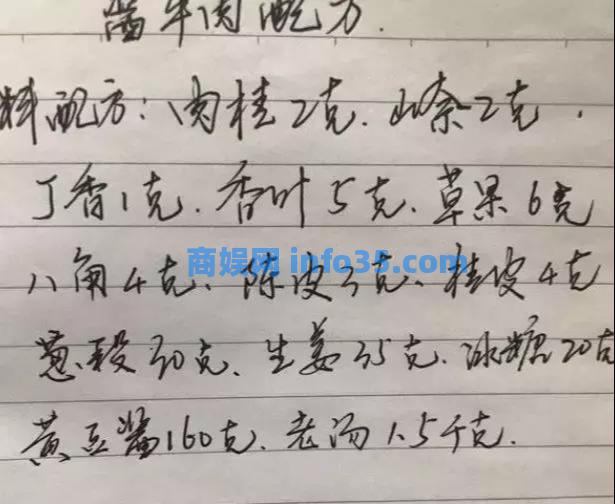 酱牛肉配方.
料配方：肉桂2克.山奈2克.
丁香1克.香叶5克.草果6克
商娱网 info35.com
八角4克、陈皮3克、桂皮4克
葱段30克、生姜35克.冰糖20克
黄豆酱160克.老汤1.5千克.